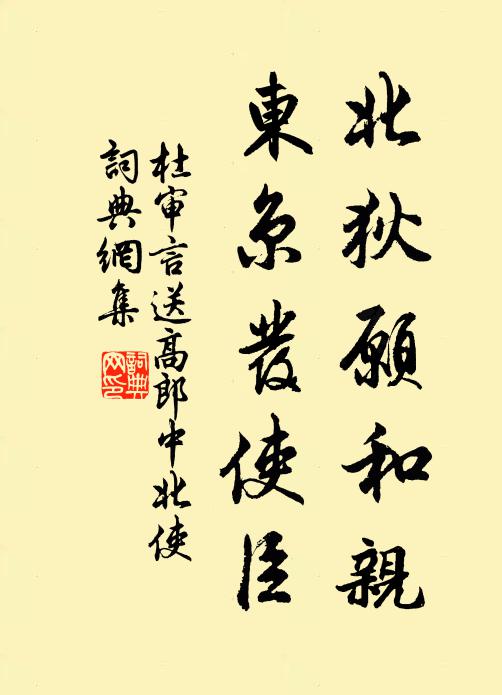 北狄願和親
東京發使臣
杜审言送高郎中北使
詞典網集
詞典网印